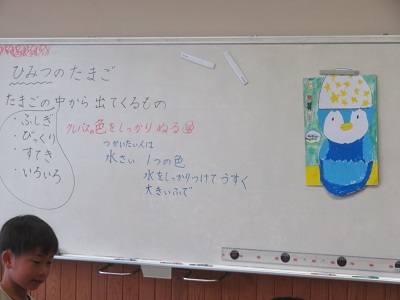 ひみつのたまご
たまごの中から出てくるもの
・ふしぎ
・びっくり
・すてき
・いろいろ
クレパスの色をしっかりぬる
つかいたい人は
水さい 1つの色
水をしっかりつけてうすく
大きいふで